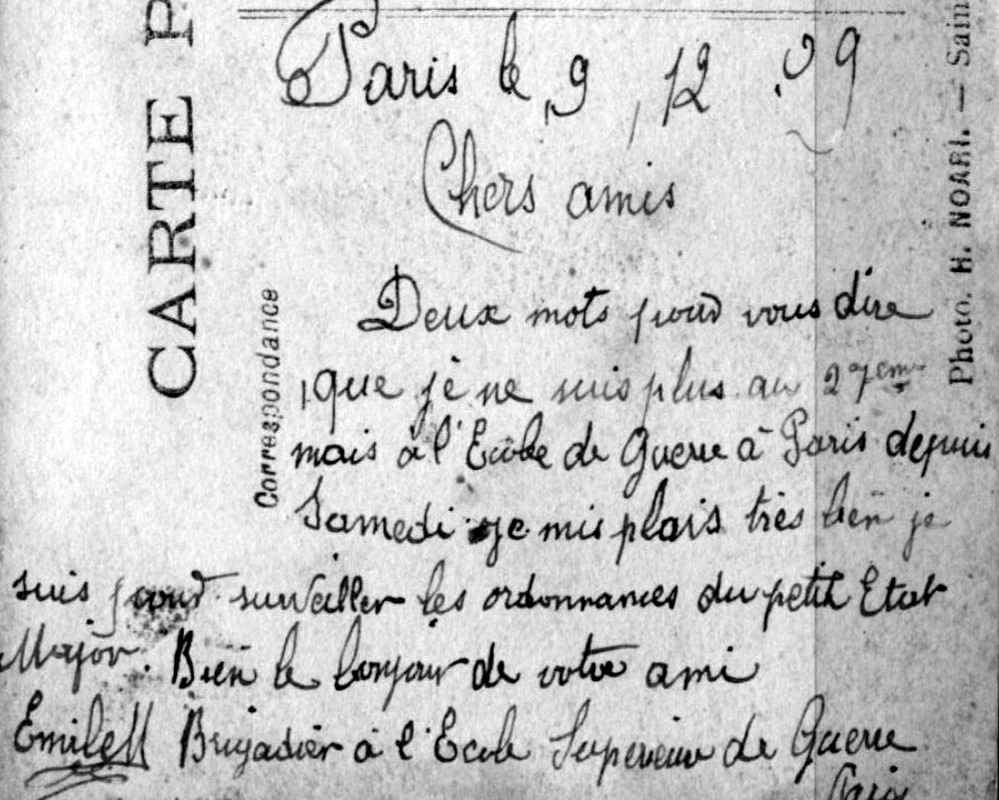 CARTE P
Correspondance
Photo. H. NOARI. — Sain
Paris le 9, 12 .09
Chers amis
Deux mots pour vous dire
que je ne suis plus au 27eme
mais à l'Ecole de Guerre à Paris depuis
Samedi je mis plais très bien je
suis pour surveiller les ordonnances du petit Etat
Major. Bien le bonjour de votre ami
Emile Brigadier à l'Ecole Superieure de Guerre
Paris